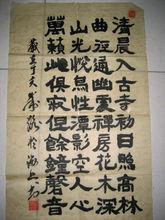 清晨入古寺初日照高林
曲逕通幽處禪房花木深
山光悅鳥性潭影空人心
萬籟此俱寂但餘鐘磬音